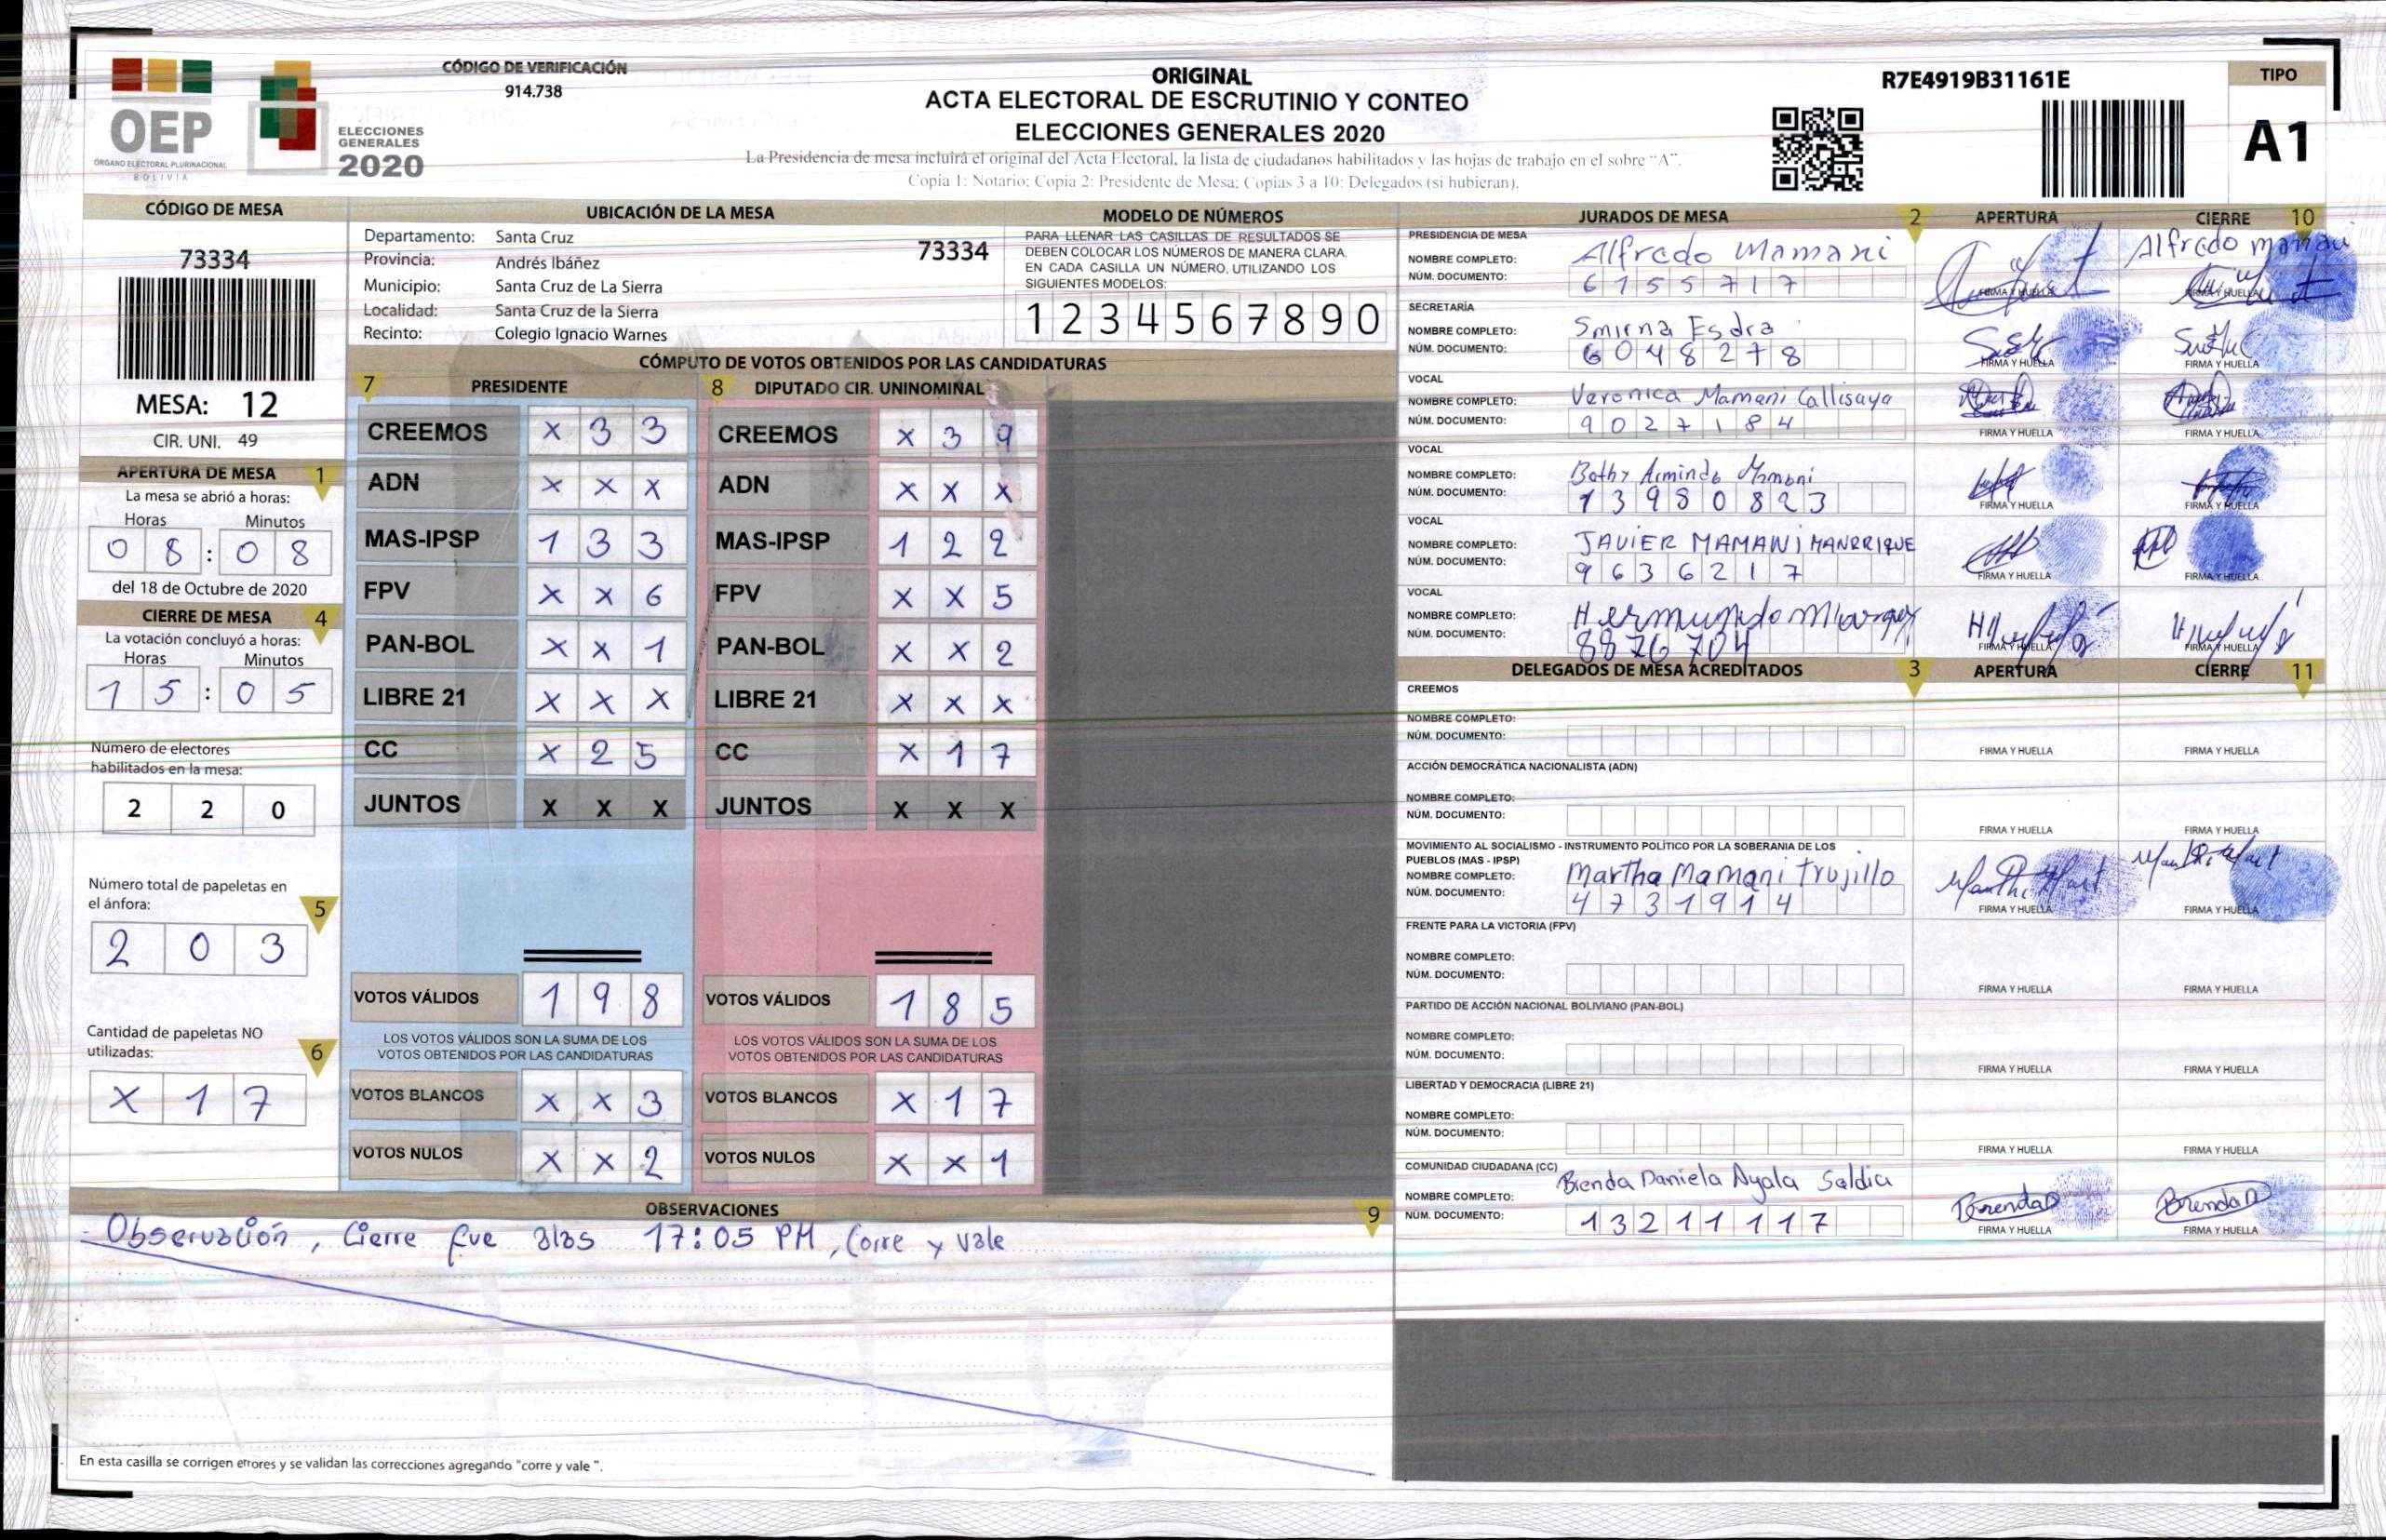 OEP
ÓRGANO ELECTORAL PLURINACIONAL
BOLIVIA
ELECCIONES
GENERALES
2020
CÓDIGO DE VERIFICACIÓN
914.738
ORIGINAL
ACTA ELECTORAL DE ESCRUTINIO Y CONTEO
ELECCIONES GENERALES 2020
La Presidencia de mesa incluirá el original del Acta Electoral, la lista de ciudadanos habilitados y las hojas de trabajo en el sobre “A”.
Copia 1: Notario; Copia 2: Presidente de Mesa; Copias 3 a 10: Delegados (si hubieran).
R7E4919B31161E
TIPO
A1
CÓDIGO DE MESA
73334
MESA: 12
CIR. UNI. 49
APERTURA DE MESA 1
La mesa se abrió a horas:
Horas Minutos
0 8 : 0 8
del 18 de Octubre de 2020
CIERRE DE MESA 4
La votación concluyó a horas:
Horas Minutos
1 5 : 0 5
Número de electores
habilitados en la mesa:
2 2 0
Número total de papeletas en
el ánfora: 5
2 0 3
Cantidad de papeletas NO
utilizadas: 6
X 1 7
UBICACIÓN DE LA MESA
Departamento: Santa Cruz
73334
Provincia: Andrés Ibáñez
Municipio: Santa Cruz de La Sierra
Localidad: Santa Cruz de la Sierra
Recinto: Colegio Ignacio Warnes
MODELO DE NÚMEROS
PARA LLENAR LAS CASILLAS DE RESULTADOS SE
DEBEN COLOCAR LOS NÚMEROS DE MANERA CLARA.
EN CADA CASILLA UN NÚMERO, UTILIZANDO LOS
SIGUIENTES MODELOS:
1 2 3 4 5 6 7 8 9 0
CÓMPUTO DE VOTOS OBTENIDOS POR LAS CANDIDATURAS
7 PRESIDENTE
CREEMOS X 3 3
ADN X X X
MAS-IPSP 1 3 3
FPV X X 6
PAN-BOL X X 1
LIBRE 21 X X X
CC X 2 5
JUNTOS X X X
VOTOS VÁLIDOS 1 9 8
LOS VOTOS VÁLIDOS SON LA SUMA DE LOS
VOTOS OBTENIDOS POR LAS CANDIDATURAS
VOTOS BLANCOS X X 3
VOTOS NULOS X X 2
8 DIPUTADO CIR. UNINOMINAL
CREEMOS X 3 9
ADN X X X
MAS-IPSP 1 2 2
FPV X X 5
PAN-BOL X X 2
LIBRE 21 X X X
CC X 1 7
JUNTOS X X X
VOTOS VÁLIDOS 1 8 5
LOS VOTOS VÁLIDOS SON LA SUMA DE LOS
VOTOS OBTENIDOS POR LAS CANDIDATURAS
VOTOS BLANCOS X 1 7
VOTOS NULOS X X 1
OBSERVACIONES 9
Observación, Cierre fue alas 17:05 PM, Corre y vale
En esta casilla se corrigen errores y se validan las correcciones agregando "corre y vale ".
JURADOS DE MESA 2 APERTURA CIERRE 10
PRESIDENCIA DE MESA
NOMBRE COMPLETO: Alfredo Mamani
Alfredo mamani
NÚM. DOCUMENTO: 6155717
FIRMA Y HUELLA FIRMA Y HUELLA
SECRETARÍA
NOMBRE COMPLETO: Smirna Esdra
NÚM. DOCUMENTO: 6048278
FIRMA Y HUELLA FIRMA Y HUELLA
VOCAL
NOMBRE COMPLETO: Veronica Mamani Callisaya
NÚM. DOCUMENTO: 9027184
FIRMA Y HUELLA FIRMA Y HUELLA
VOCAL
NOMBRE COMPLETO: Armindo Mamani
NÚM. DOCUMENTO: 13980823
FIRMA Y HUELLA FIRMA Y HUELLA
VOCAL
NOMBRE COMPLETO: JAVIER MAMANI MANRRIQUE
NÚM. DOCUMENTO: 9636217
FIRMA Y HUELLA FIRMA Y HUELLA
VOCAL
NOMBRE COMPLETO:
NÚM. DOCUMENTO: 8876704
FIRMA Y HUELLA FIRMA Y HUELLA
DELEGADOS DE MESA ACREDITADOS 3 APERTURA CIERRE 11
CREEMOS
NOMBRE COMPLETO:
NÚM. DOCUMENTO:
FIRMA Y HUELLA FIRMA Y HUELLA
ACCIÓN DEMOCRÁTICA NACIONALISTA (ADN)
NOMBRE COMPLETO:
NÚM. DOCUMENTO:
FIRMA Y HUELLA FIRMA Y HUELLA
MOVIMIENTO AL SOCIALISMO - INSTRUMENTO POLÍTICO POR LA SOBERANIA DE LOS
PUEBLOS (MAS - IPSP)
NOMBRE COMPLETO: Martha Mamani Trujillo
NÚM. DOCUMENTO: 4731914
FIRMA Y HUELLA FIRMA Y HUELLA
FRENTE PARA LA VICTORIA (FPV)
NOMBRE COMPLETO:
NÚM. DOCUMENTO:
FIRMA Y HUELLA FIRMA Y HUELLA
PARTIDO DE ACCIÓN NACIONAL BOLIVIANO (PAN-BOL)
NOMBRE COMPLETO:
NÚM. DOCUMENTO:
FIRMA Y HUELLA FIRMA Y HUELLA
LIBERTAD Y DEMOCRACIA (LIBRE 21)
NOMBRE COMPLETO:
NÚM. DOCUMENTO:
FIRMA Y HUELLA FIRMA Y HUELLA
COMUNIDAD CIUDADANA (CC)
NOMBRE COMPLETO: Brenda Daniela Ayala Saldia
NÚM. DOCUMENTO: 13211117
BrendaD BrendaD
FIRMA Y HUELLA FIRMA Y HUELLA